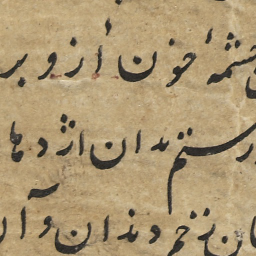 چشمهٔ خون ازو بر
رستم بدان اژدها
زخم دندان و آن